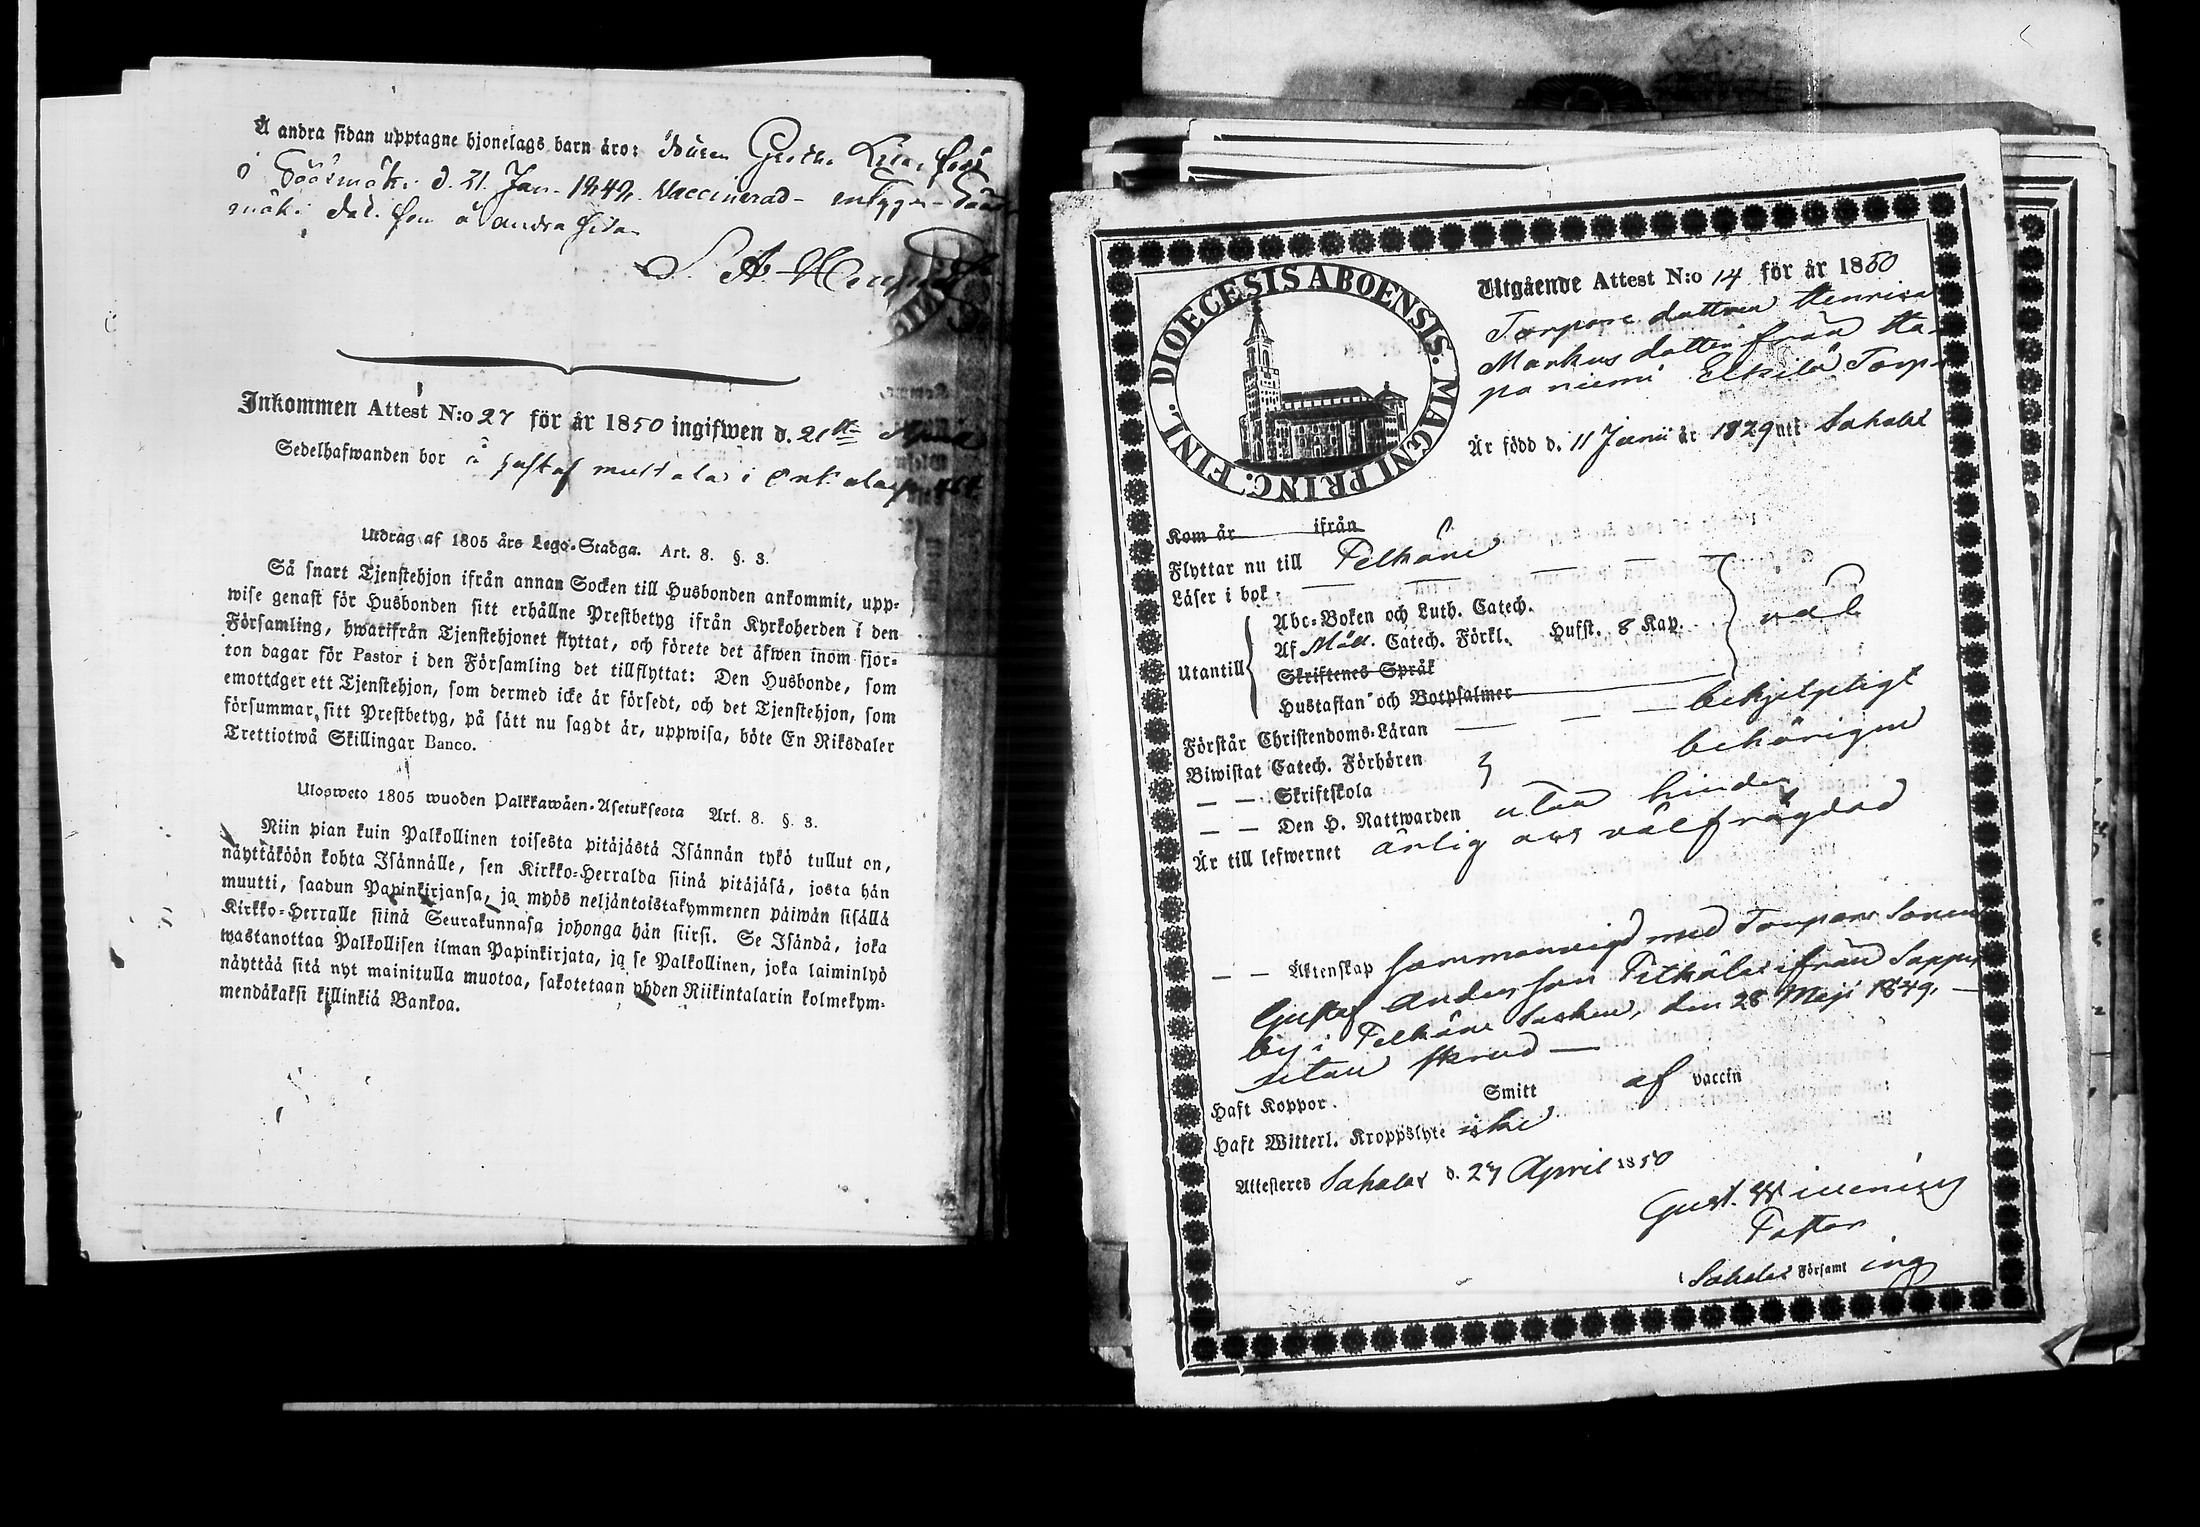 Å andra sidan upptagne hjonelags barn äro: Gretha Lisa, född
i Sääxmäki d. 21 Jan. 1849. Vaccinerad
mäki å andra sidan
S. A.
Inkommen Attest N:o 27 för år 1850 ingifwen d. 21 April
Sedelhafwanden bor i
Utdrag af 1805 års Lego-Stadga. Art. 8. §. 3.
Så snart Tjenstehjon ifrån annan Socken till Husbonden ankommit, upp-
wise genast för Husbonden sitt erhållne Prestbetyg ifrån Kyrkoherden i den
Församling, hwarifrån Tjenstehjonet flyttat, och förete det äfwen inom fjor-
ton dagar för Pastor i den Församling det tillflyttat: Den Husbonde, som
emottager ett Tjenstehjon, som dermed icke är försedt, och det Tjenstehjon, som
försummar sitt Prestbetyg, på sätt nu sagdt är, uppwisa, böte En Riksdaler
Trettiotwå Skillingar Banco.
Ulosweto 1805 wuoden Palkkawäen-Asetuksesta Art. 8. §. 3.
Niin pian kuin Palkollinen toisesta pitäjästä Isännän tykö tullut on,
näyttäköön kohta Isännälle, sen Kirkko-Herralda siinä pitäjäsä, josta hän
muutti, saadun Papinkirjansa, ja myös neljäntoistakymmenen päiwän sisällä
Kirkko-Herralle siinä Seurakunnasa johonga hän siirsi. Se Isändä, joka
wastanottaa Palkollisen ilman Papinkirjata, ja se Palkollinen, joka laiminlyö
näyttää sitä nyt mainitulla muotoa, sakotetaan yhden Riikintalarin kolmekym-
mendäkaksi killinkiä Bankoa.
DIOECESIS ABOENSIS. MAGNI PRINC. FINL.
Utgående Attest N:o 14 för år 1850
Torpare dottren Henrica
Markus dotter från Ha-
paniemi Eskilä Torp
Är född d. 11 Junii år 1829 uti Sahalax
Kom år ifrån
Flyttar nu till Pelkäne
Läser i bok
Abc-Boken och Luth. Catech.
Af Catech. Förkl. Hufst. 8 Kap.
Utantill
Skriftenes Språk
Hustaflan och Botpsalmer
Förstår Christendoms-Läran behjelpligt
Biwistat Catech. Förhören behörigen
— — Skriftskola
— — Den H. Nattwarden utan hinder
Är till lefwernet ärlig och välfrägdad
— — Äktenskap sammanvigd med Torpare Sonen
Gustaf Andersson Pitkälä ifrån Sappe
by i Pelkäne Socken, den 28 Maji 1849,
utan
Haft Koppor. Smitt af vaccin
Haft Witterl. Kroppslyte icke
Attesteres Sahalax d. 27 April 1850
Gust. Winning
Pastor
i Sahalax Församl ing